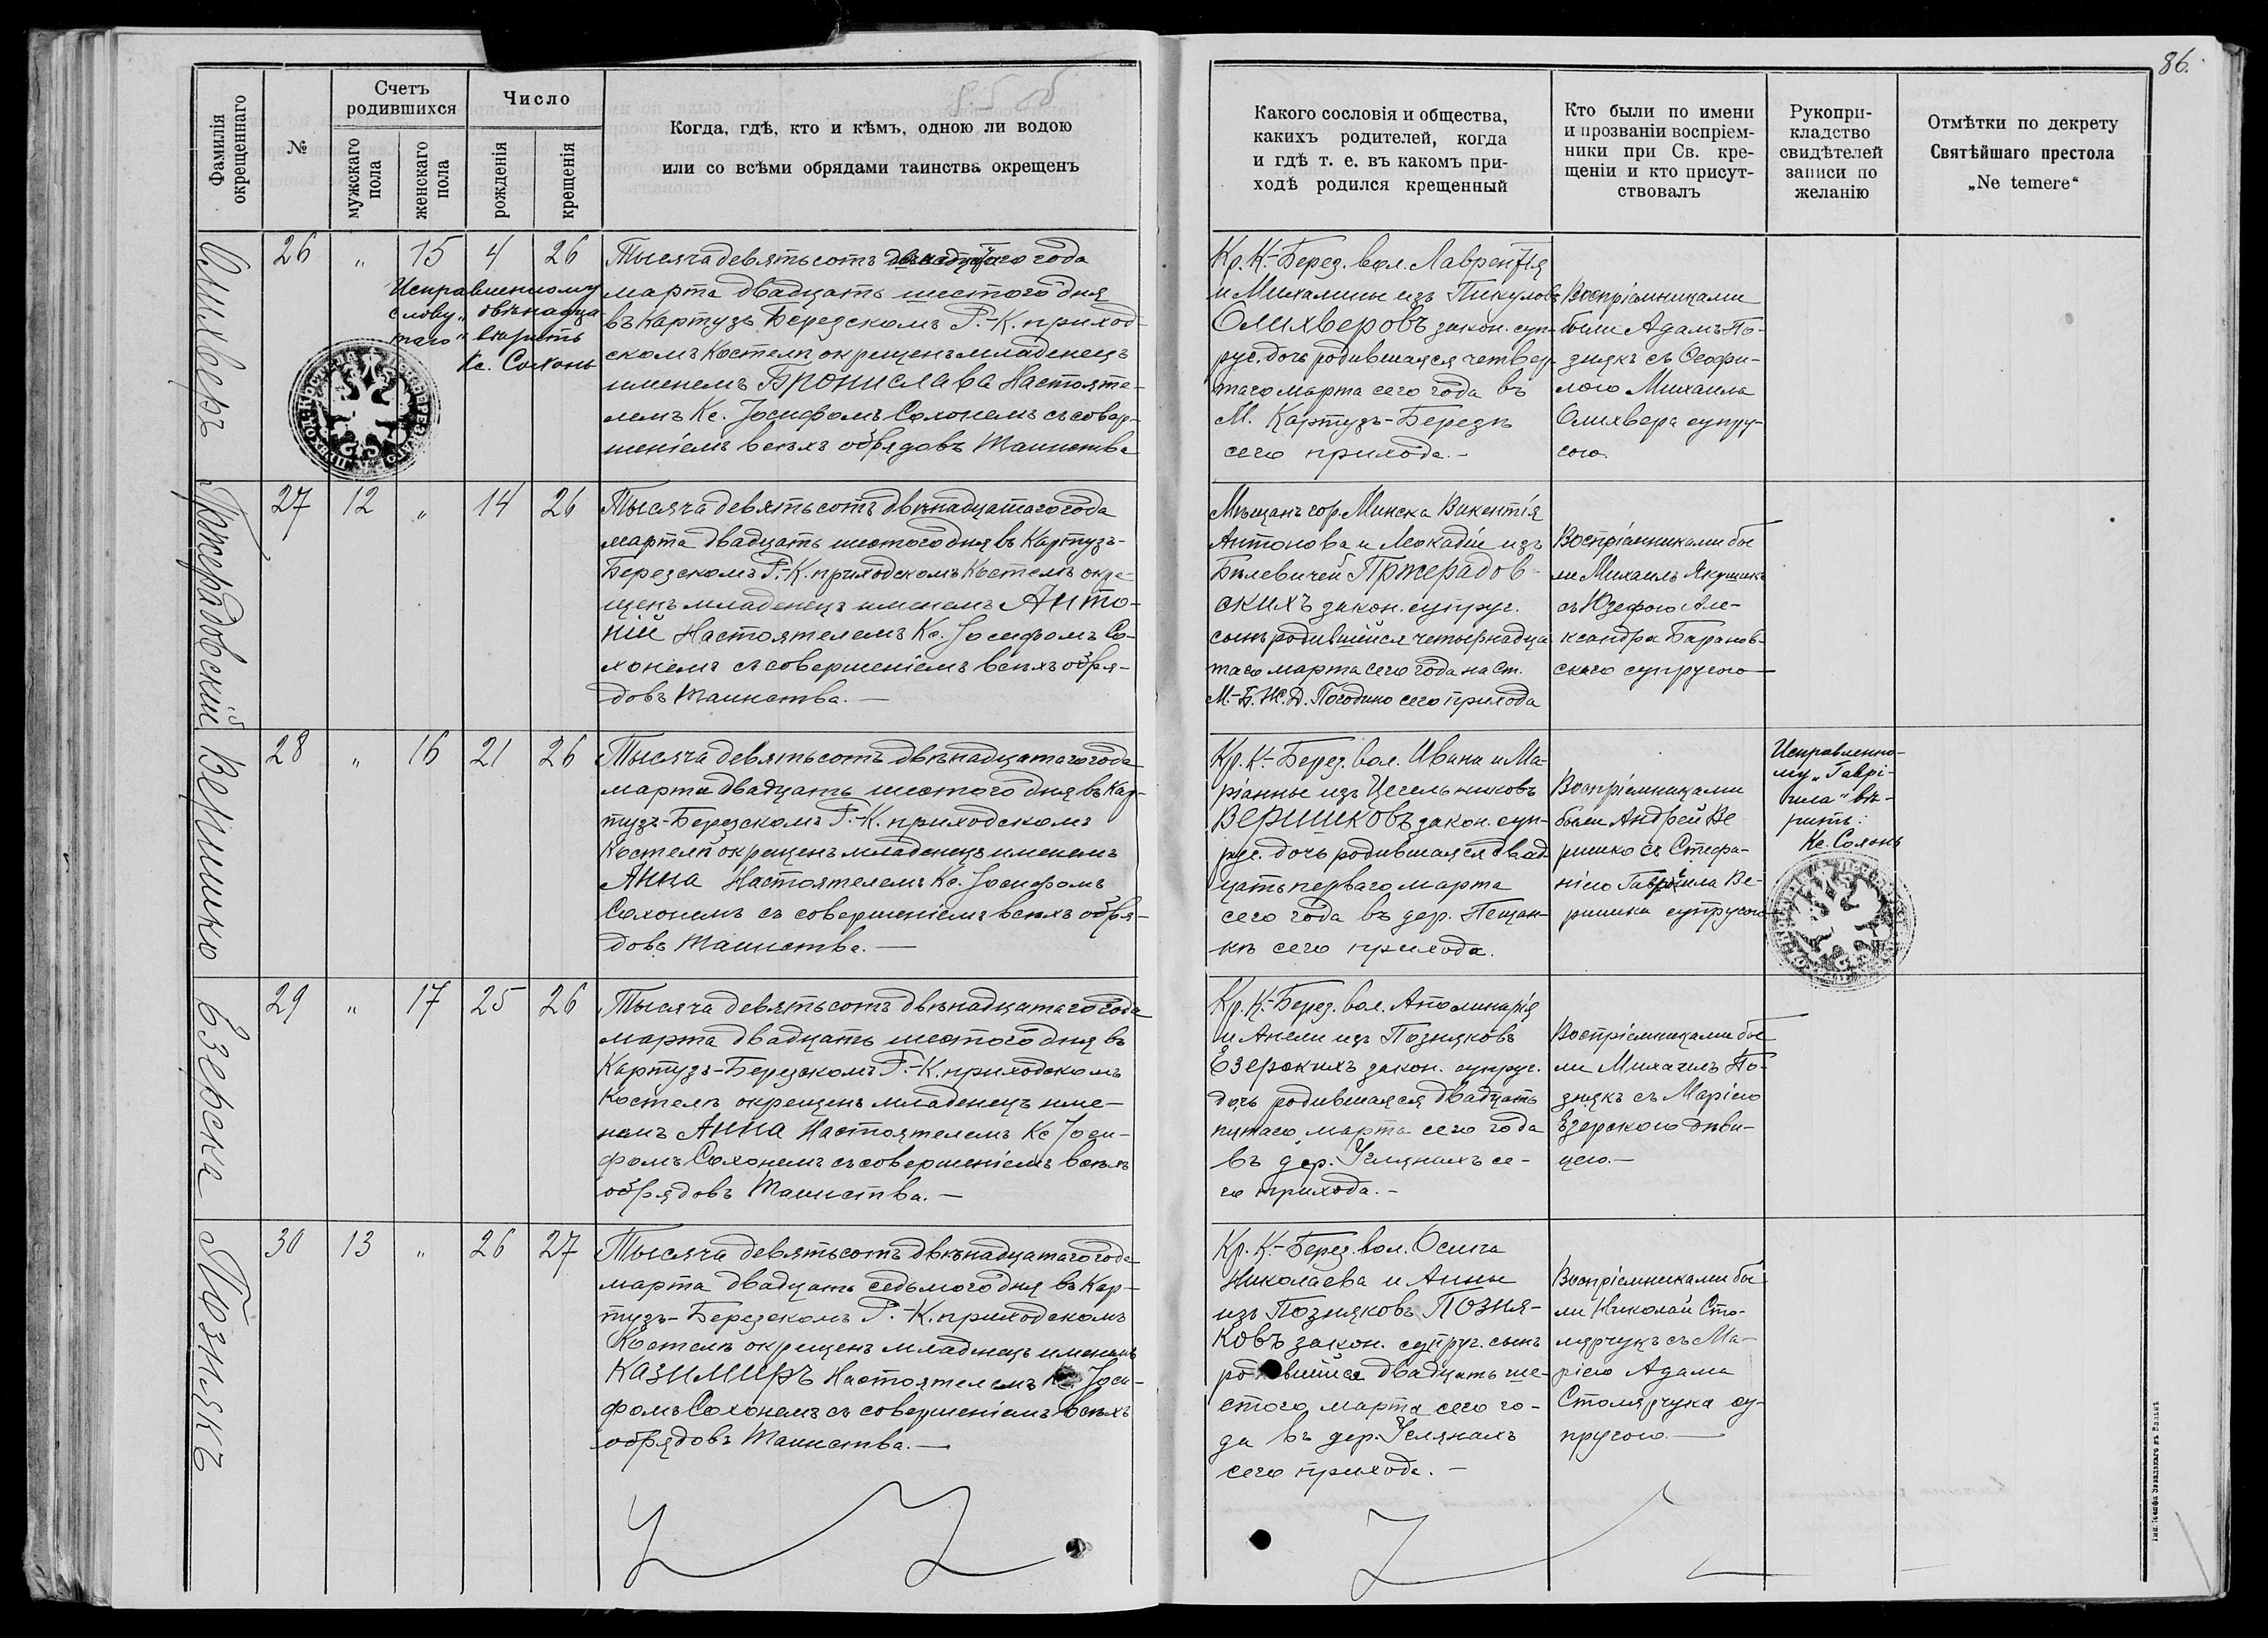 86.
Фамилія
окрещеннаго
№
Счетъ
родившихся
мужскаго
пола
женскаго
пола
Число
рожденія
крещенія
Когда, гдѣ, кто и кѣмъ, одною ли водою
или со всѣми обрядами таинства окрещенъ
Какого сословія и общества,
какихъ родителей, когда
и гдѣ т. е. въ какомъ при-
ходѣ родился крещенный
Кто были по имени
и прозваніи воспріем-
ники при Св. кре-
щеніи и кто присут-
ствовалъ
Рукопри-
кладство
свидѣтелей
записи по
желанію
Отмѣтки по декрету
Святѣйшаго престола
„Ne temere“
Олихверъ
26 „ 15 4 26
Исправленному
слову „двѣнадца-
таго“ вѣрить
Кс. Сохонь
Тысяча девятьсотъ двѣнадцатаго года
марта двадцать шестого дня
въ Картузъ Березскомъ Р.-К. приход-
скомъ Костелѣ окрещенъ младенецъ
именемъ Бронислава Настояте-
лемъ Кс. Іосифомъ Сохонемъ съ совер-
шеніемъ всѣхъ обрядовъ Таинства
Кр. К.-Берез. вол. Лаврентія
и Михалины изъ Пикуловъ
Олихверовъ закон. суп-
руг. дочь родившаяся четвер-
таго марта сего года въ
М. Картузъ-Березѣ
сего прихода.-
Воспріемниками
были Адамъ По-
знякъ съ Ѳеофи-
лою Михаила
Олихвера супру-
гою.
Пржерадовскій
27 12 „ 14 26
Тысяча девятьсотъ двѣнадцатаго года
марта двадцать шестого дня въ Картузъ-
Березскомъ Р.-К. приходскомъ Костелѣ окре-
щенъ младенецъ именемъ Анто-
ній Настоятелемъ Кс. Іосифомъ Со-
хонемъ съ совершеніемъ всѣхъ обря-
довъ Таинства.-
Мѣщанъ гор. Минска Викентія
Антонова и Леокадіи изъ
Билевичей Пржерадов-
скихъ закон. супруг.
сынъ родившійся четырнадца-
таго марта сего года на ст.
М.-Б. Ж. Д. Погодино сего прихода
Воспріемниками бы-
ли Михаилъ Якушикъ
съ Юзефою Але-
ксандра Баранов-
скаго супругою
Веришко
28 „ 16 21 26
Тысяча девятьсотъ двѣнадцатаго года
марта двадцать шестого дня въ Кар-
тузъ-Березскомъ Р.-К. приходскомъ
Костелѣ окрещенъ младенецъ именемъ
Анна Настоятелемъ Кс. Іосифомъ
Сохонемъ съ совершеніемъ всѣхъ обря-
довъ Таинства.-
Кр. К.-Берез. вол. Ивана и Ма-
ріанны изъ Цесельниковъ
Веришковъ закон. суп-
руг. дочь родившаяся двад-
цать перваго марта
сего года въ дер. Пещан-
кѣ сего прихода.
Воспріемниками
были Андрей Ве
ришко съ Стефа-
ніею Гавріила Ве-
ришки супругою
Исправленно-
му „Гаврі-
ила“ вѣ-
рить:
Кс. Сохонь
Езерска
29 „ 17 25 26
Тысяча девятьсотъ двѣнадцатаго года
марта двадцать шестого дня въ
Картузъ-Березскомъ Р.-К. приходскомъ
Костелѣ окрещенъ младенецъ име-
немъ Анна Настоятелемъ Кс Іоси-
фомъ Сохонемъ съ совершеніемъ всѣхъ
обрядовъ Таинства.-
Кр. К.-Берез. вол. Аполинарія
и Анели изъ Позняковъ
Езерскихъ закон. супруг.
дочь родившаяся двадцать
пятаго марта сего года
въ дер. Углянахъ се-
го прихода.-
Воспріемниками бы
ли Михаилъ По-
знякъ съ Маріею
Езерскою дѣви-
цею.-
Познякъ
30 13 „ 26 27
Тысяча девятьсотъ двѣнадцатаго года
марта двадцать седьмого дня въ Кар-
тузъ-Березскомъ Р.-К. приходскомъ
Костелѣ окрещенъ младенецъ именемъ
Казимиръ Настоятелемъ Кс. Іоси-
фомъ Сохонемъ съ совершеніемъ всѣхъ
обрядовъ Таинства.-
Кр. К.-Берез. вол. Осипа
Николаева и Анны
изъ Позняковъ Позня-
ковъ закон. супруг. сынъ
родившійся двадцать ше-
стого марта сего го-
да въ дер. Углянахъ
сего прихода.-
Воспріемниками бы
ли Николай Сто-
лярчукъ съ Ма-
ріею Адама
Столярчука су-
пругою.-